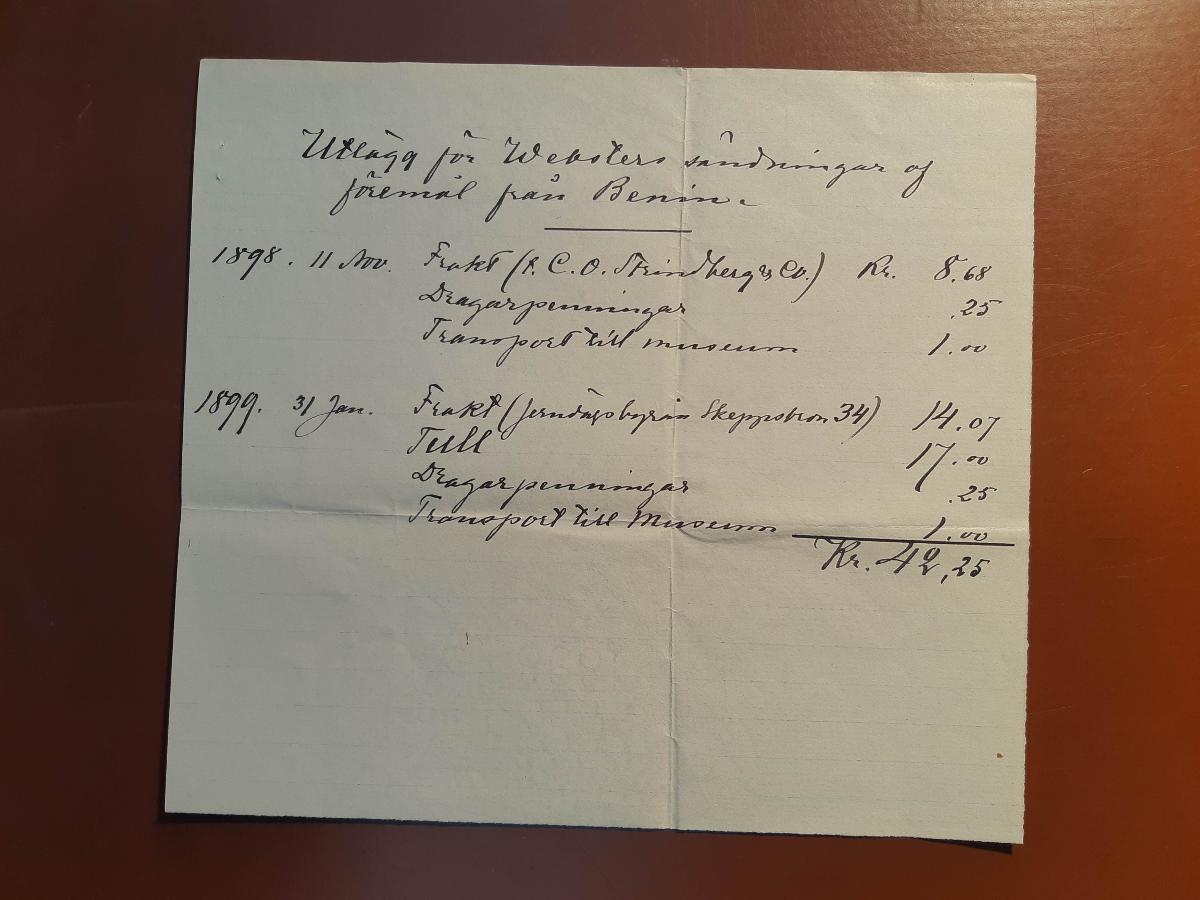 Utlägg för Websters sändningar af
föremål från Benin.
1898. 11 Nov. Frakt (f. C. O. Strindberg & Co.) Kr. 8.68
Dragarpenningar .25
Transport till museum 1.00
1899. 31 Jan. Frakt (Jernvägsbyrån Skeppsbron 34) 14.07
Tull 17.00
Dragarpenningar .25
Transport till Museum 1.00
Kr. 42,25